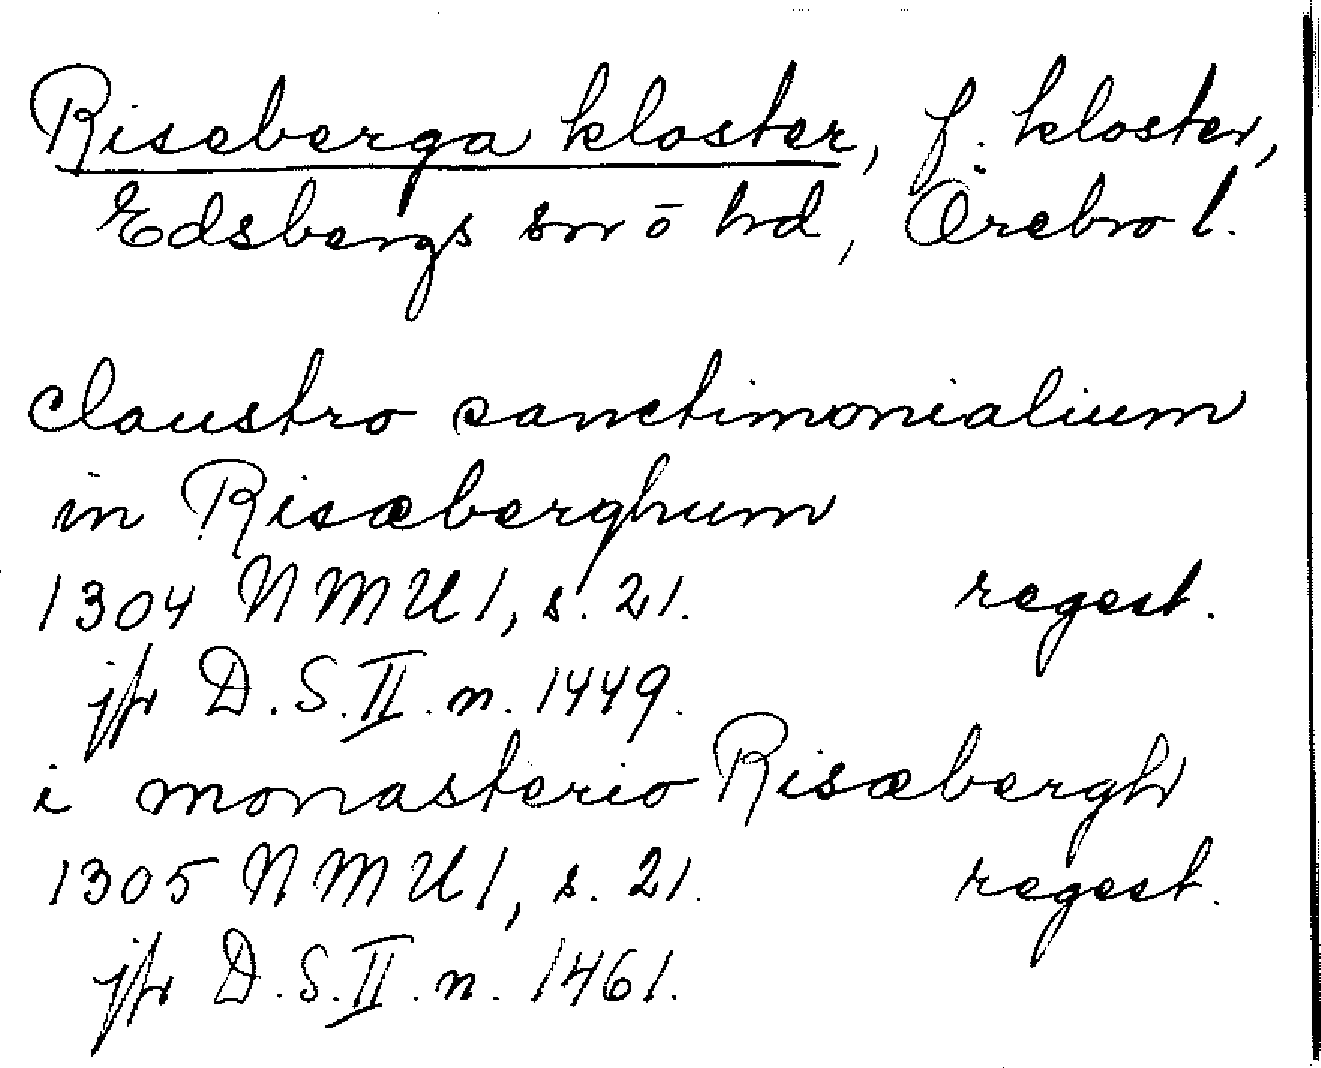 Riseberga kloster, f. kloster,
Edsbergs sn o hd, Örebro l.
claustro sanctimonialium
in Risæberghum
1304 NMU 1, s. 21. regest.
jfr D.S. II. n. 1449.
i monasterio Risæbergh
1305 NMU 1, s. 21. regest.
jfr D.S. II. n. 1461.